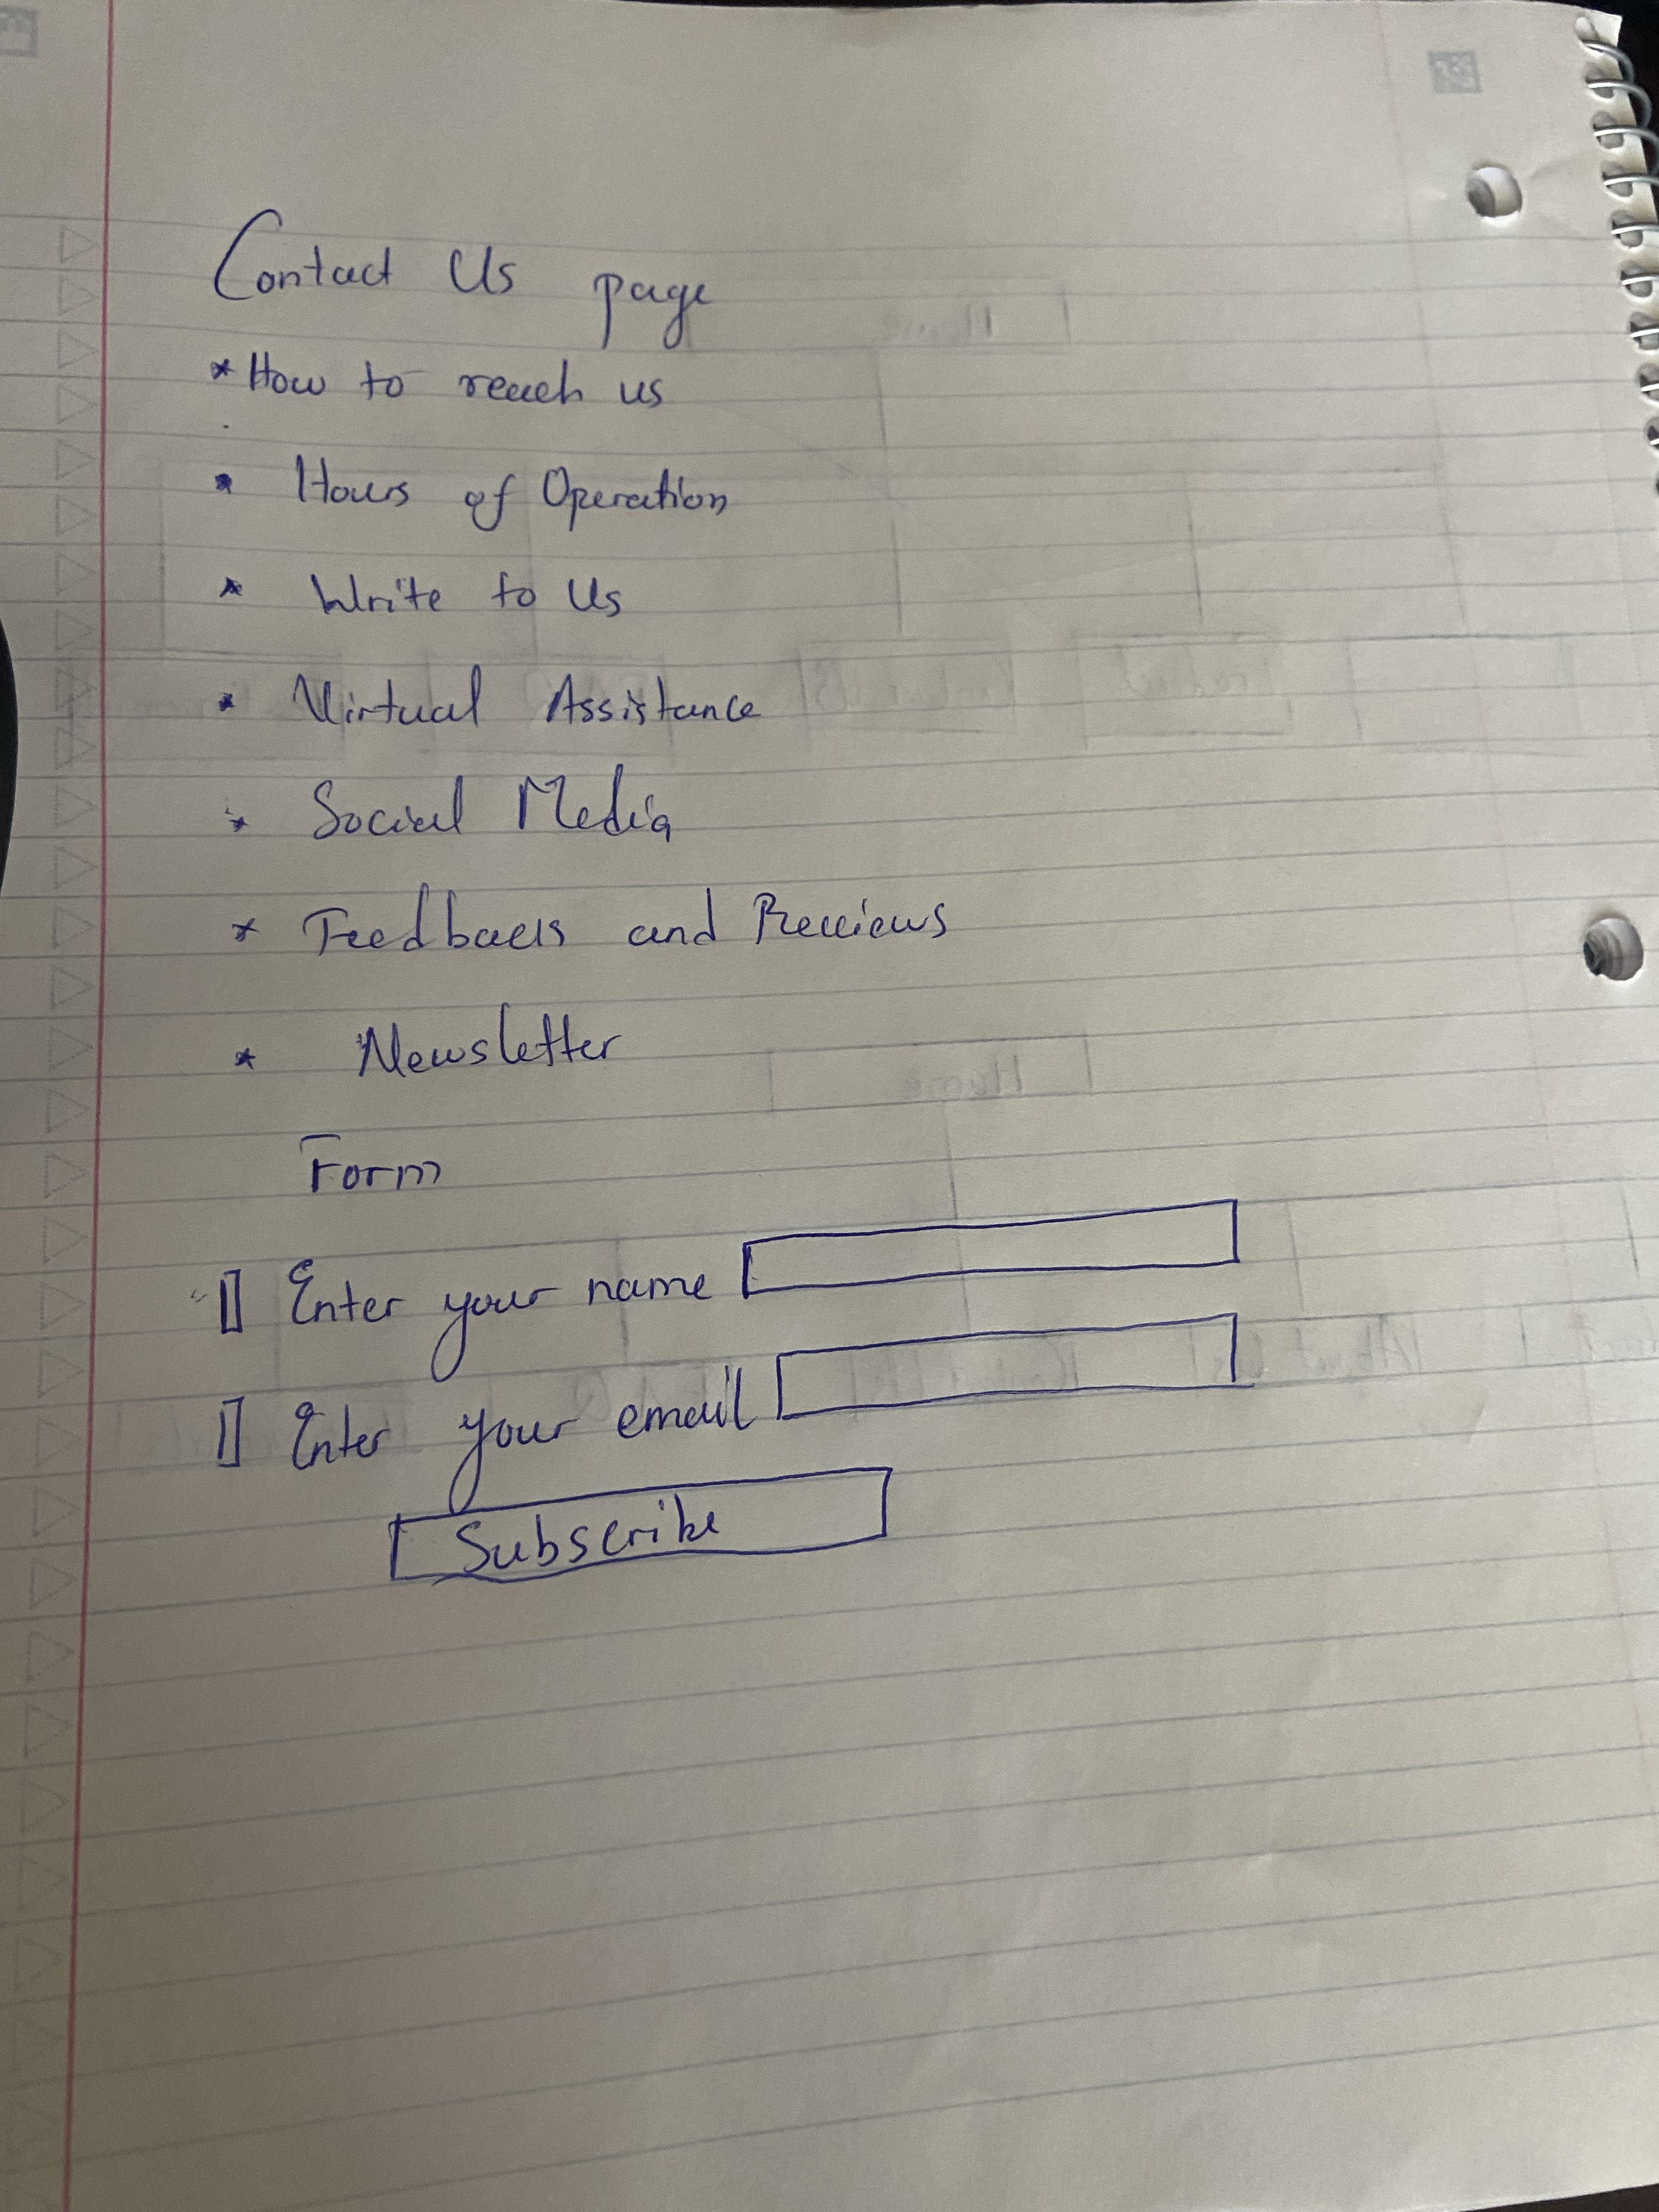 Contact Us page
* How to reach us
* Hours of Operation
* Write to Us
* Virtual Assistance
* Social Media
* Feedback and Reviews
* Newsletter
Form
[] Enter your name
[] Enter your email
Subscribe